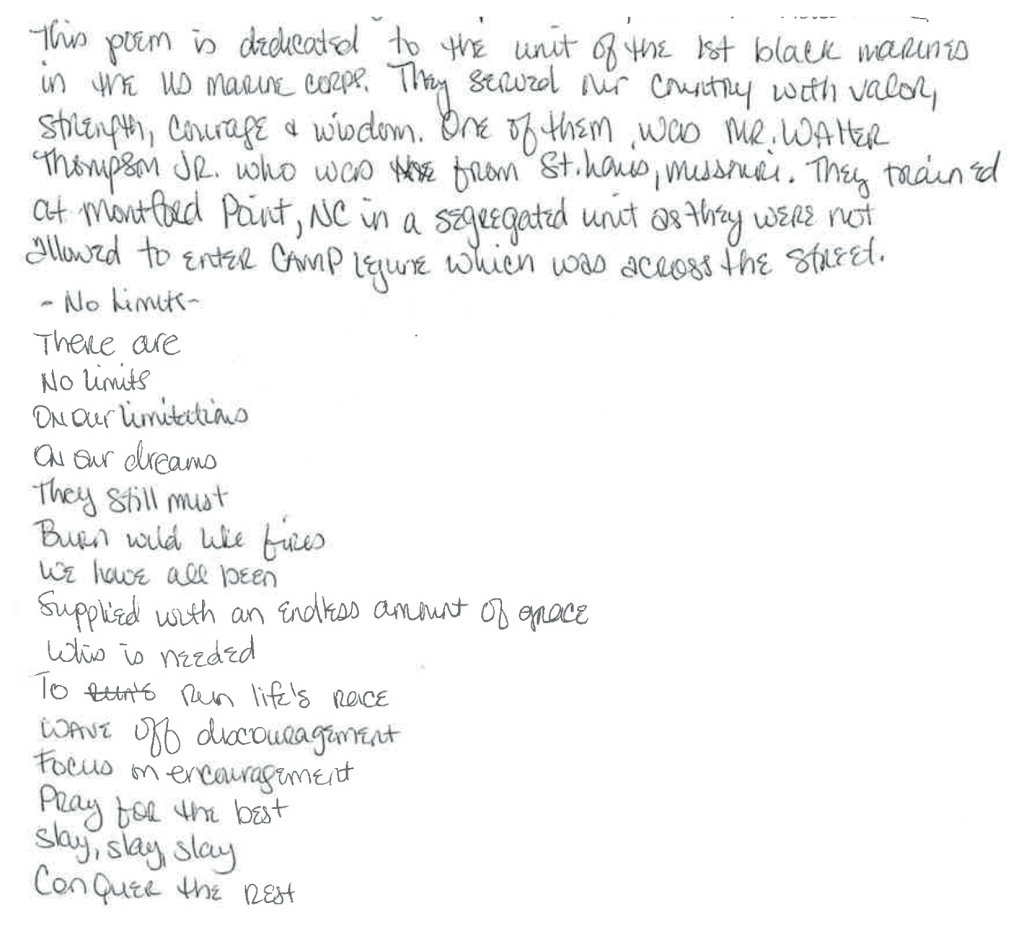 This poem is dedicated to the unit of the 1st black marines
in the US marine corps. They served our country with valor,
strength, courage & wisdom. One of them was MR. WALTER
Thompson JR. who was from St. Louis, Missouri. They trained
at Montford Point, NC in a segregated unit as they were not
allowed to enter CAMP Lejune which was across the street.
- No Limits -
There are
No limits
On our limitations
On our dreams
They still must
Burn wild like fires
We have all been
Supplied with an endless amount of grace
Who is needed
To run's Run life's race
WAVE off discouragement
Focus on encouragement
Pray for the best
Slay, slay, slay
Conquer the rest